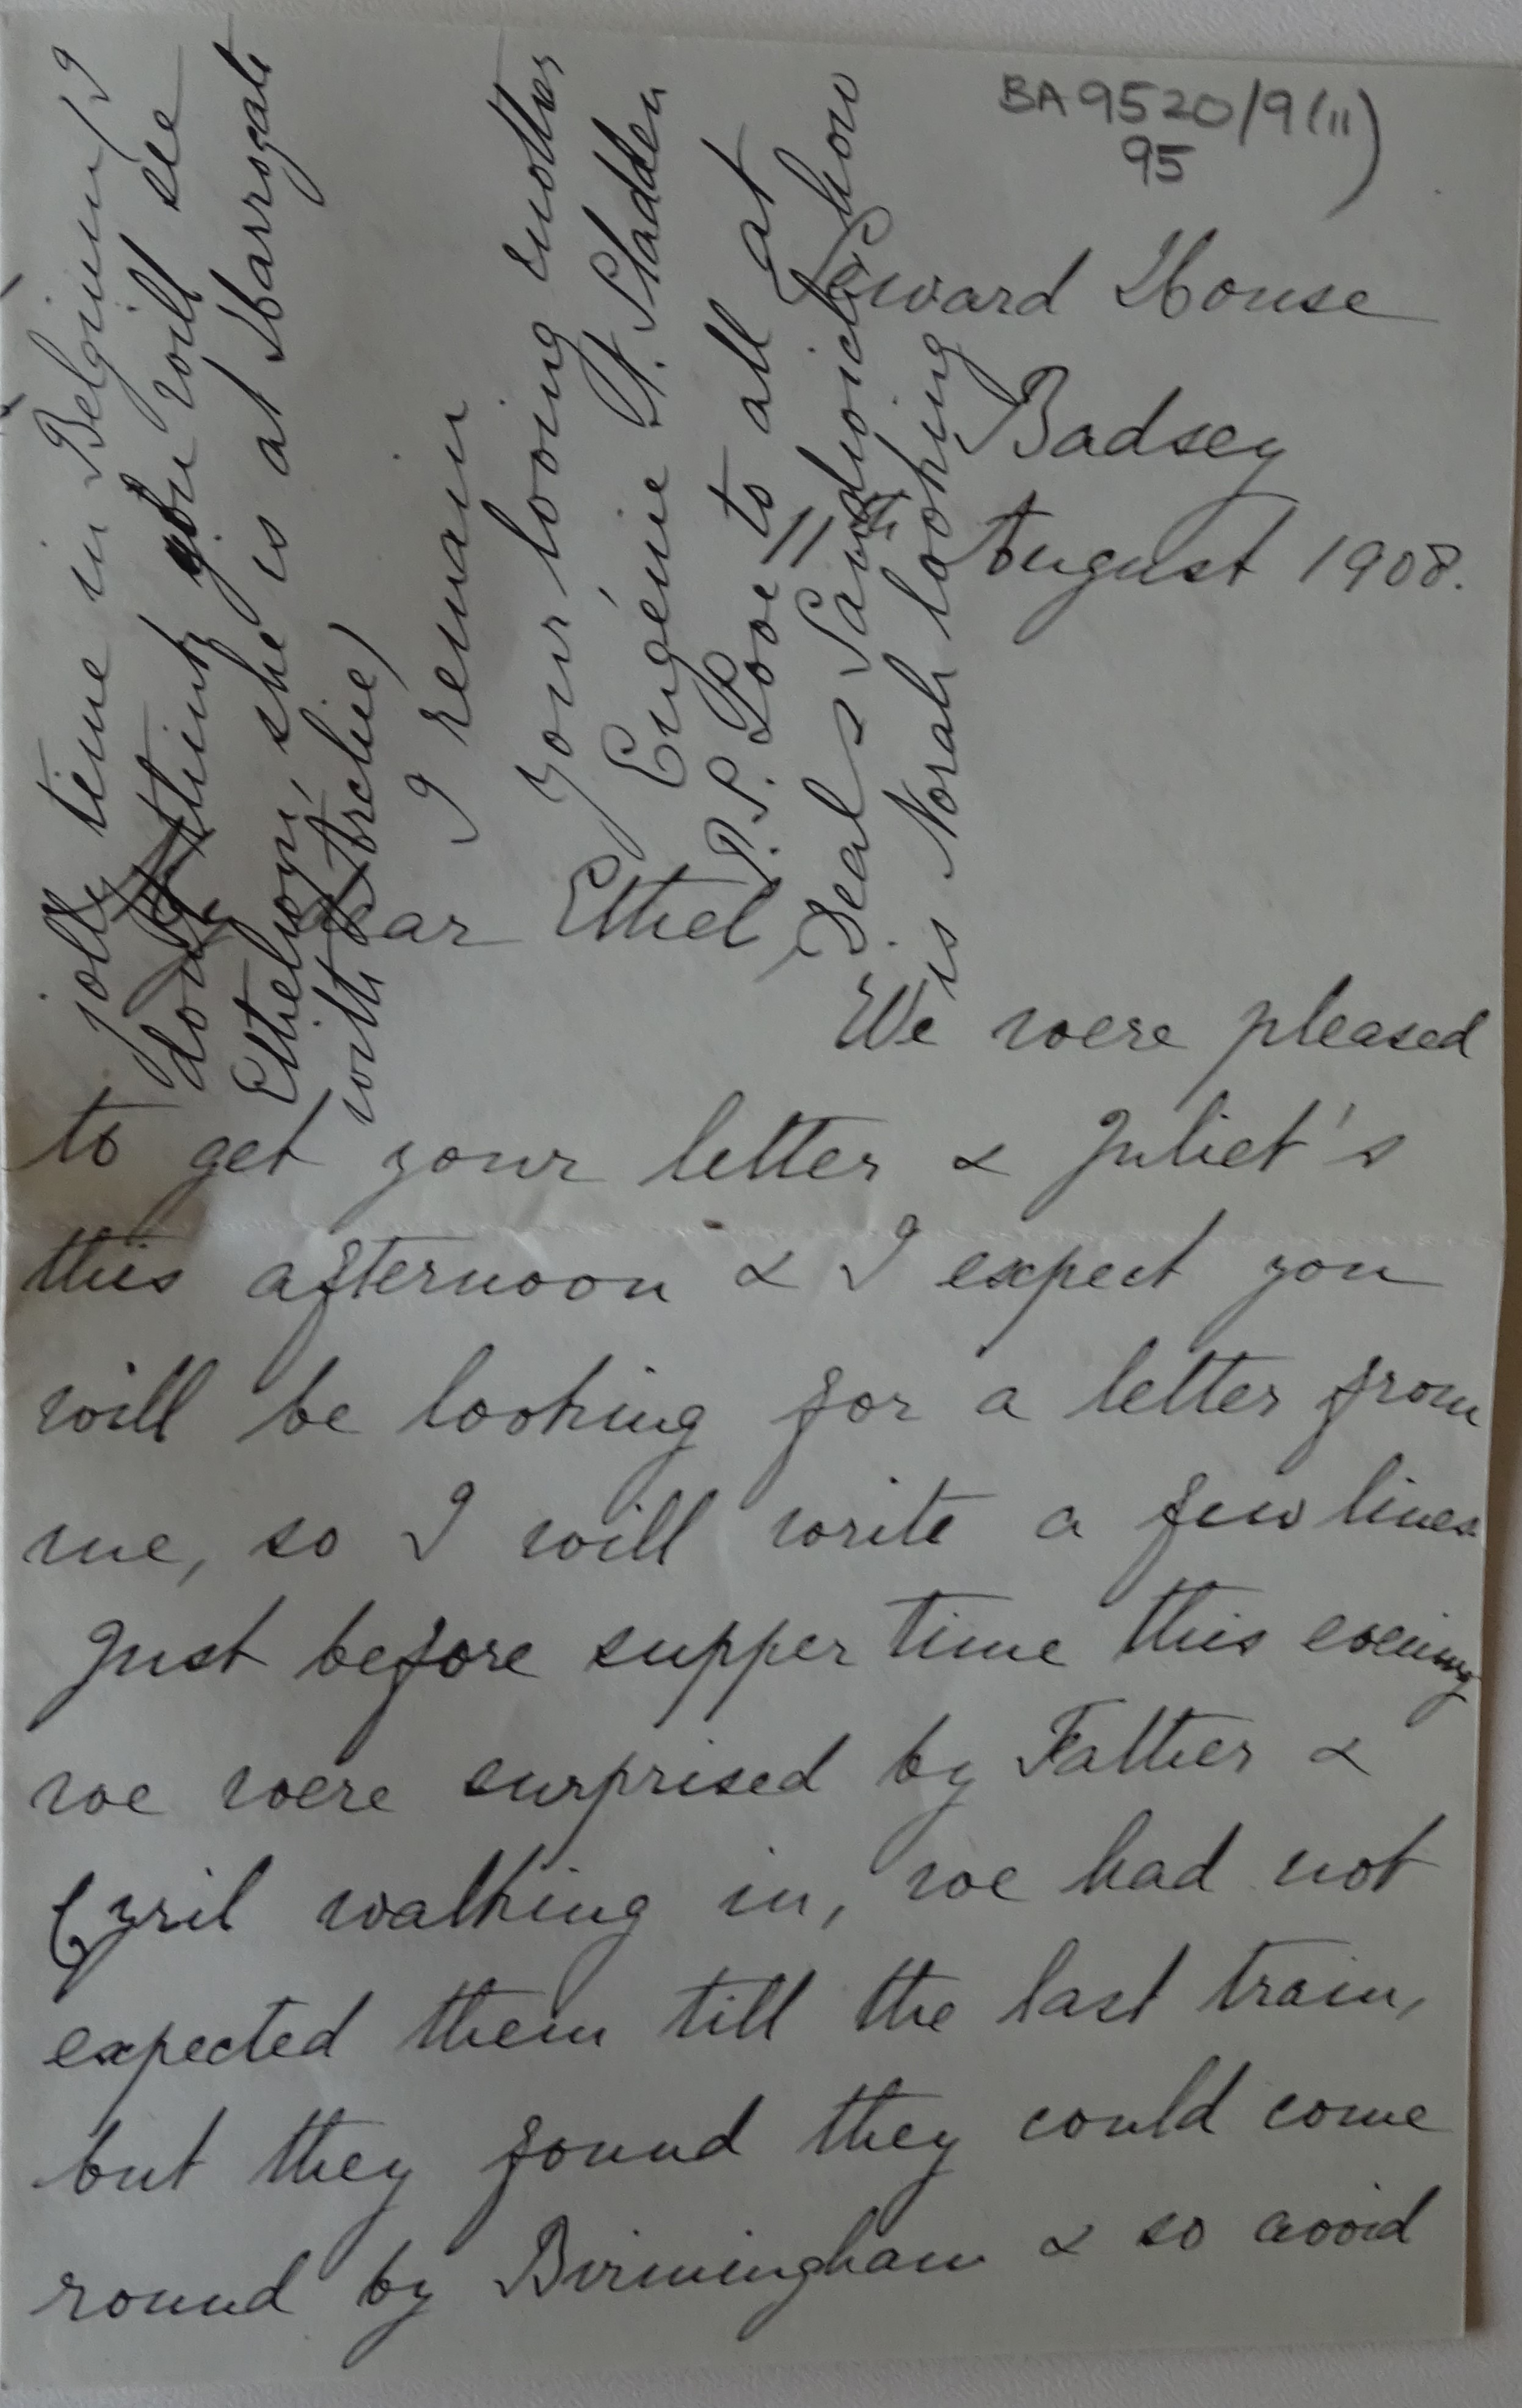 BA 9520/9(11)
95
Seward House
Badsey
11th August 1908.
My dear Ethel,
We were pleased
to get your letter & Juliet's
this afternoon & I expect you
will be looking for a letter from
me, so I will write a few lines
just before supper time this evening
we were surprised by Father &
Cyril walking in, we had not
expected them till the last train,
but they found they could come
round by Birmingham & so avoid
jolly time in Belgium (I
don't think you will see
Ethelwyn, she is at Harrogate
with Archie)
I remain
Your loving mother
Eugénie N. Sladden
P.S. Love to all at
Deal & Sandwich how
is Norah looking